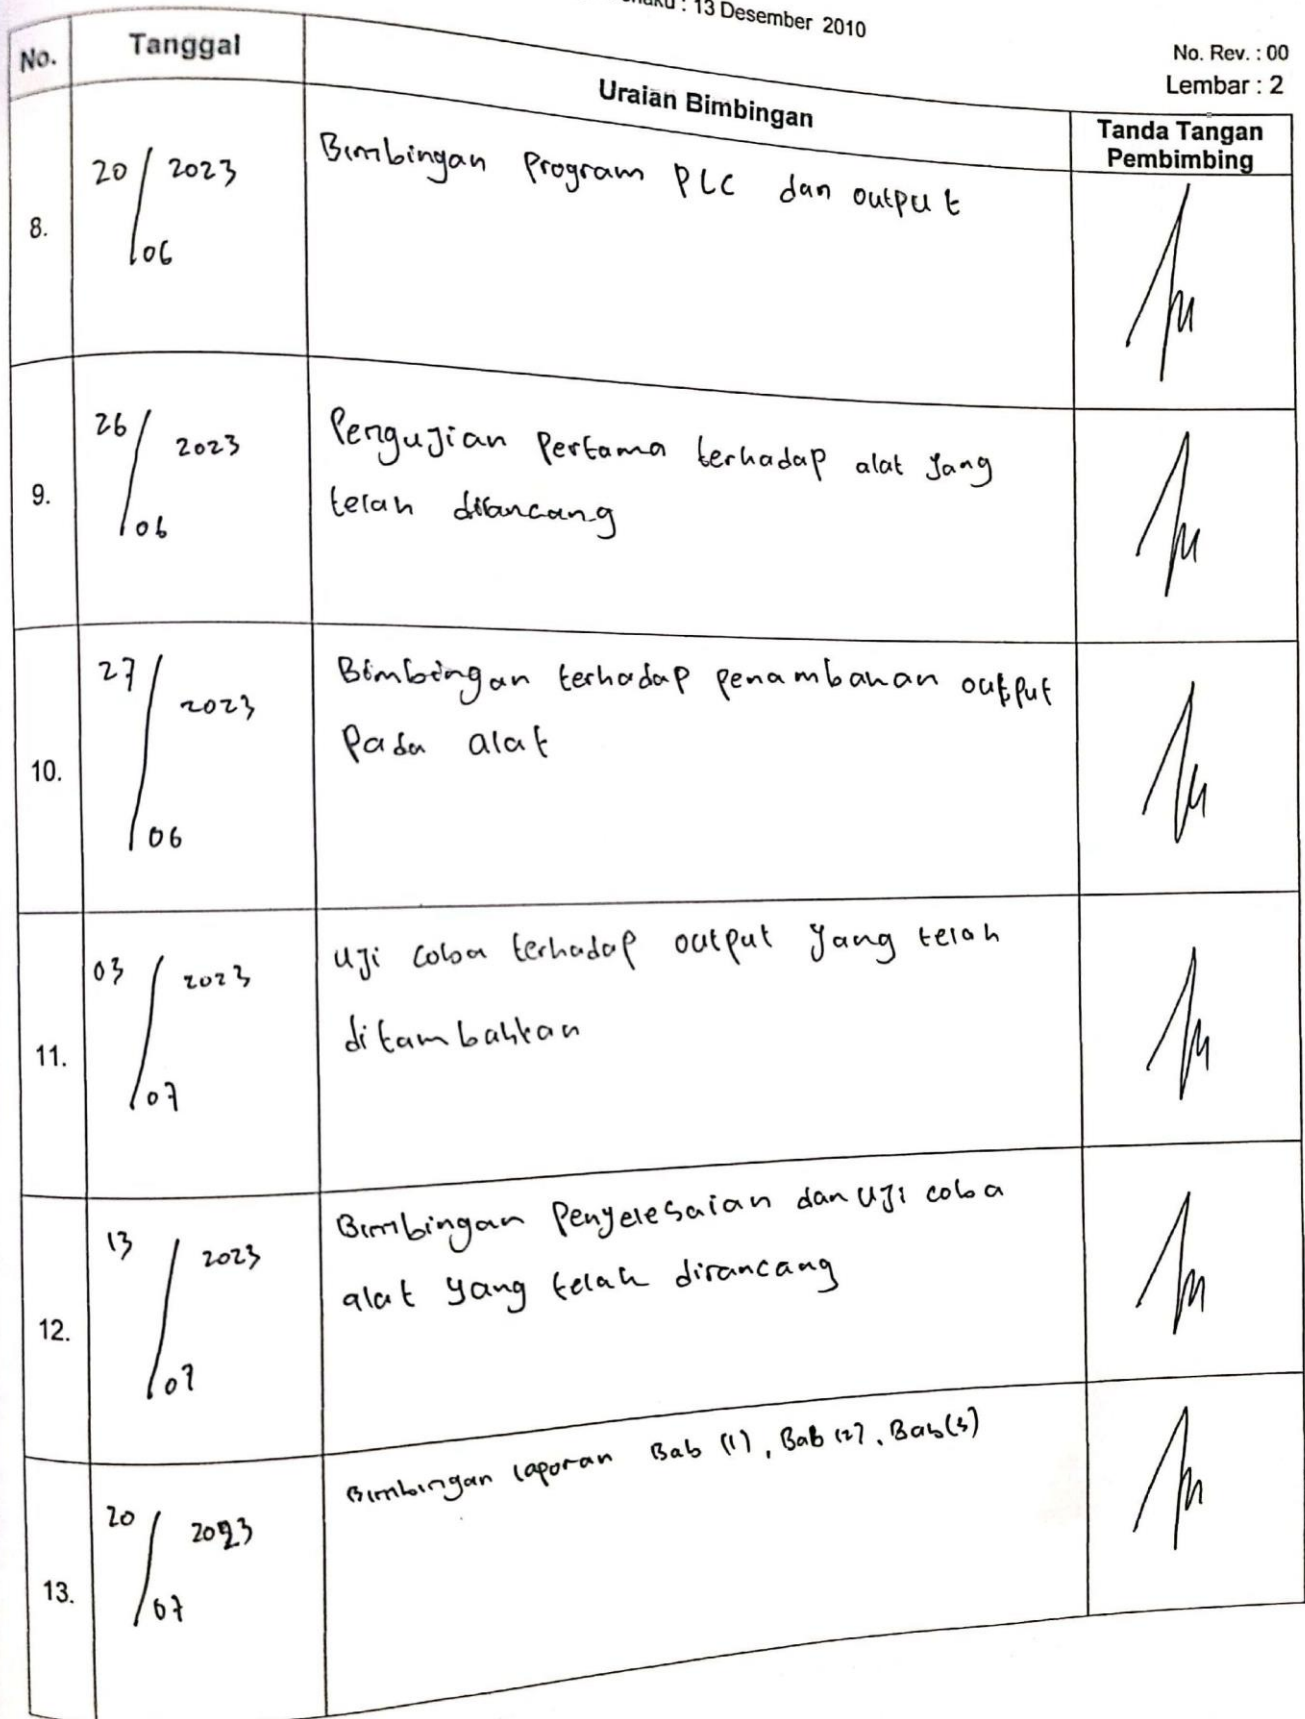 : 13 Desember 2010
No. Rev. : 00
Lembar : 2
No.
Tanggal
Uraian Bimbingan
Tanda Tangan
Pembimbing
8.
20 / 2023
06
Bimbingan Program PLC dan output
9.
26 / 2023
06
Pengujian Pertama terhadap alat yang
telah dirancang
10.
27 / 2023
06
Bimbingan terhadap penambahan output
Pada alat
11.
03 / 2023
07
Uji coba terhadap output yang telah
ditambahkan
12.
13 / 2023
07
Bimbingan Penyelesaian dan uji coba
alat yang telah dirancang
13.
20 / 2023
07
Bimbingan laporan Bab (1), Bab (2), Bab (3)